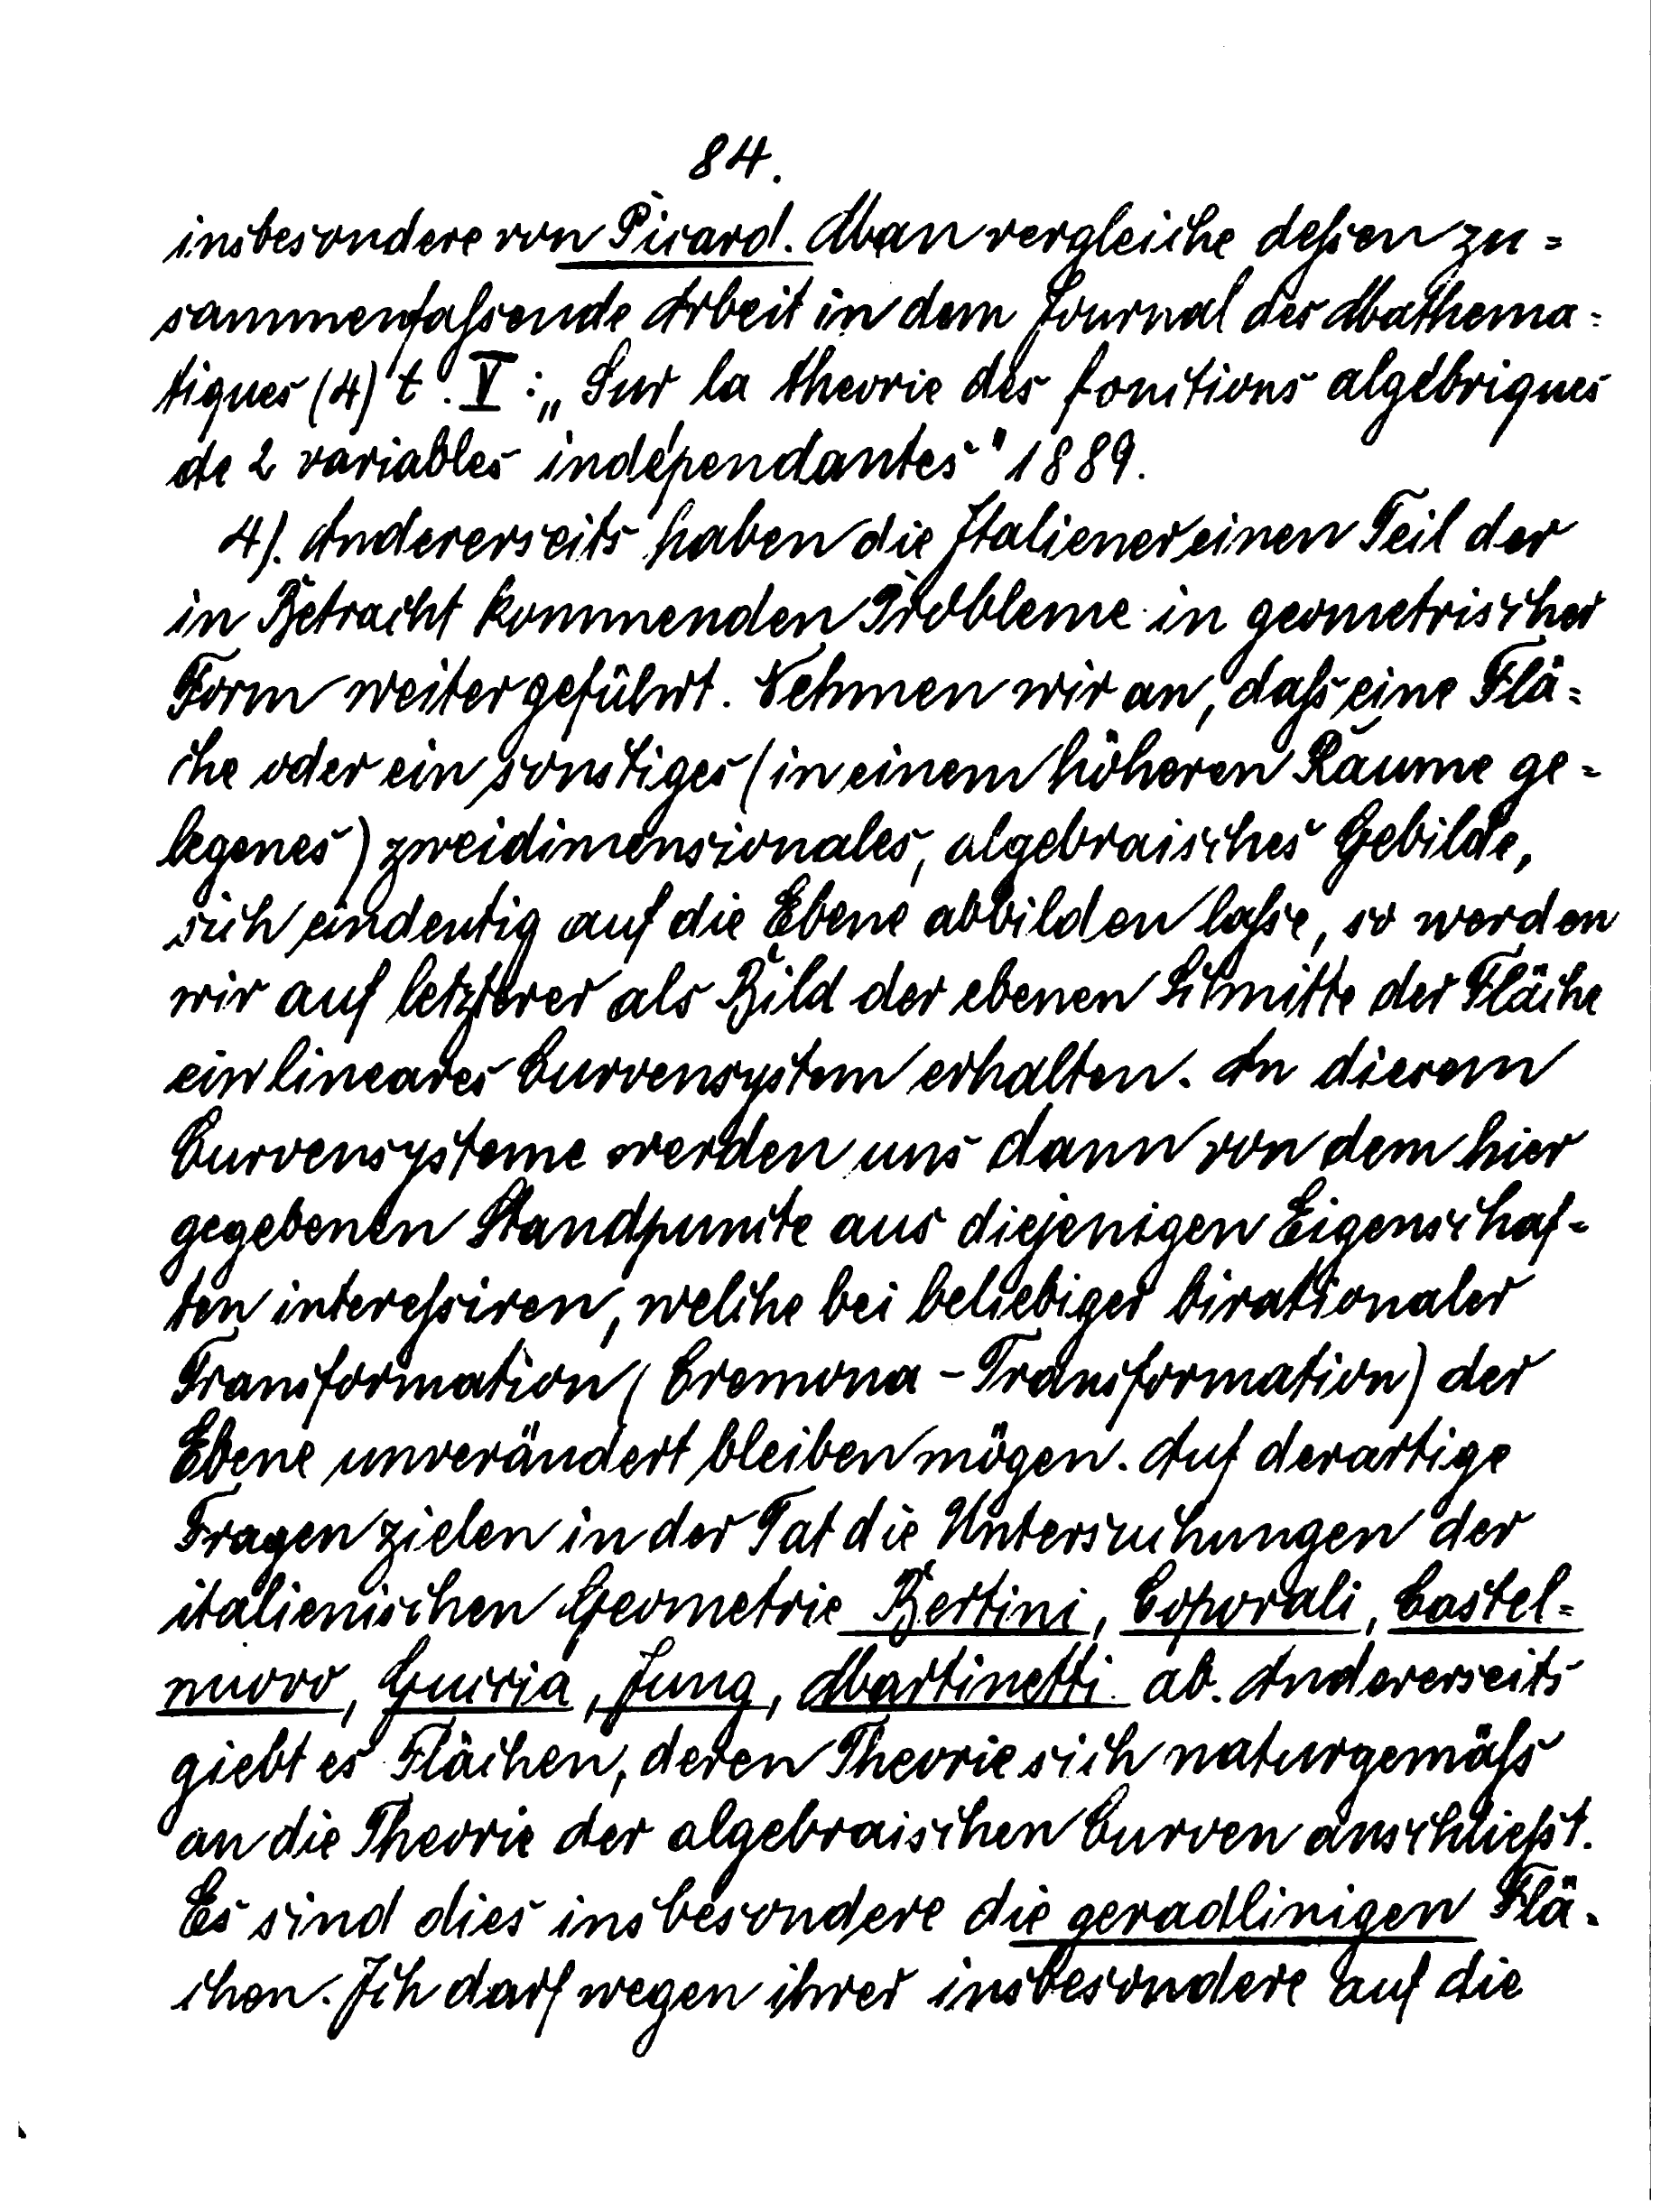 84.
insbesondere von Picard. Man vergleiche dessen zu=
sammenfassende Arbeit in dem Journal des Mathema=
tiques (4) t. V: „Sur la theorie des fonctions algébriques
de 2 variables indépendantes" 1889.
4). Andererseits haben die Italiener einen Teil der
in Betracht kommenden Probleme in geometrischer
Form weiter geführt. Nehmen wir an, dass eine Flä=
che oder ein sonstiges (in einem höheren Raume ge=
legenes) zweidimensionales, algebraisches Gebilde,
sich eindeutig auf die Ebene abbilden lasse, so werden
wir auf letzterer als Bild der ebenen Schnitte der Fläche
ein lineares Curvensystem erhalten. An diesem
Curvensysteme werden uns dann von dem hier
gegebenen Standpuncte aus diejenigen Eigenschaf=
ten interessiren, welche bei beliebiger birationaler
Transformation (Cremona-Transformation) der
Ebene unverändert bleiben mögen. Auf derartige
Fragen zielen in der Tat die Untersuchungen der
italienischen Geometrie Bertini, Coporali, Castel=
nuovo, Guccia, Jung, Martinetti ab. Andererseits
giebt es Flächen, deren Theorie sich naturgemäss
an die Theorie der algebraischen Curven anschliesst.
Es sind dies insbesondere die geradlinigen Flä=
chen. Ich darf wegen ihrer insbesondere auf die